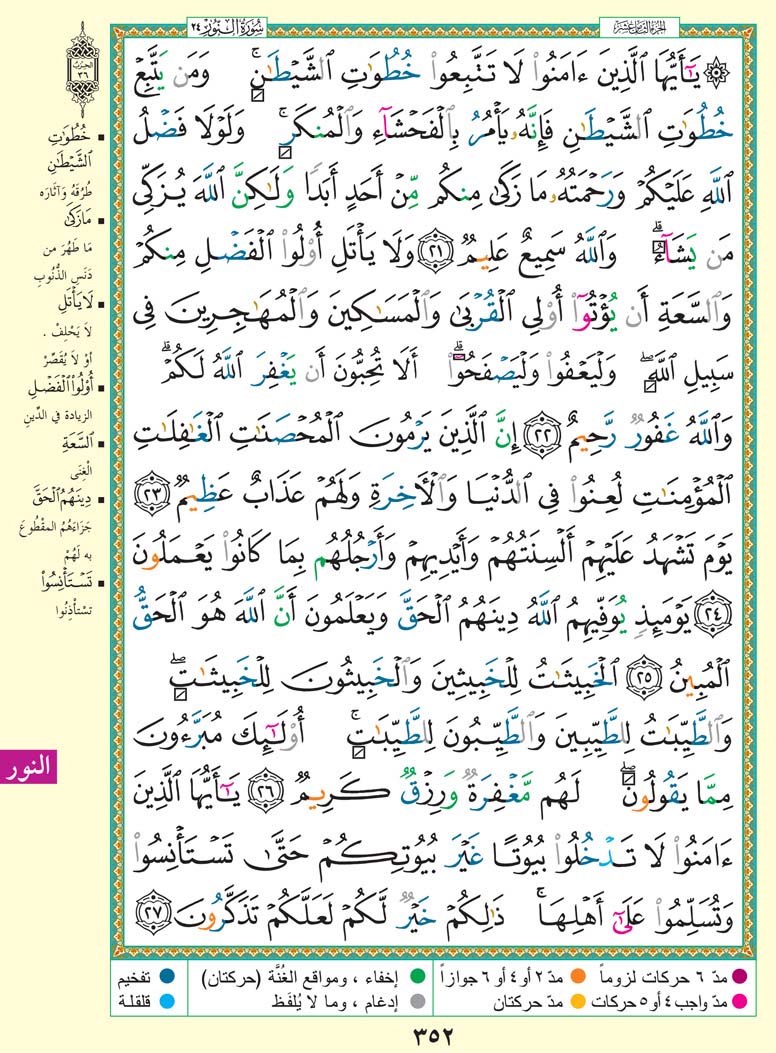 سُورَةُ النُّور ٢٤
الجزء الثامن عشر
۞ يَٰٓأَيُّهَا ٱلَّذِينَ ءَامَنُوا۟ لَا تَتَّبِعُوا۟ خُطُوَٰتِ ٱلشَّيْطَٰنِ ۚ وَمَن يَتَّبِعْ
خُطُوَٰتِ ٱلشَّيْطَٰنِ فَإِنَّهُۥ يَأْمُرُ بِٱلْفَحْشَآءِ وَٱلْمُنكَرِ ۚ وَلَوْلَا فَضْلُ
ٱللَّهِ عَلَيْكُمْ وَرَحْمَتُهُۥ مَا زَكَىٰ مِنكُم مِّنْ أَحَدٍ أَبَدًا وَلَٰكِنَّ ٱللَّهَ يُزَكِّى
مَن يَشَآءُ ۗ وَٱللَّهُ سَمِيعٌ عَلِيمٌ ٢١ وَلَا يَأْتَلِ أُو۟لُوا۟ ٱلْفَضْلِ مِنكُمْ
وَٱلسَّعَةِ أَن يُؤْتُوٓا۟ أُو۟لِى ٱلْقُرْبَىٰ وَٱلْمَسَٰكِينَ وَٱلْمُهَٰجِرِينَ فِى
سَبِيلِ ٱللَّهِ ۖ وَلْيَعْفُوا۟ وَلْيَصْفَحُوٓا۟ ۗ أَلَا تُحِبُّونَ أَن يَغْفِرَ ٱللَّهُ لَكُمْ ۗ
وَٱللَّهُ غَفُورٌ رَّحِيمٌ ٢٢ إِنَّ ٱلَّذِينَ يَرْمُونَ ٱلْمُحْصَنَٰتِ ٱلْغَٰفِلَٰتِ
ٱلْمُؤْمِنَٰتِ لُعِنُوا۟ فِى ٱلدُّنْيَا وَٱلْءَاخِرَةِ وَلَهُمْ عَذَابٌ عَظِيمٌ ٢٣
يَوْمَ تَشْهَدُ عَلَيْهِمْ أَلْسِنَتُهُمْ وَأَيْدِيهِمْ وَأَرْجُلُهُم بِمَا كَانُوا۟ يَعْمَلُونَ
٢٤ يَوْمَئِذٍ يُوَفِّيهِمُ ٱللَّهُ دِينَهُمُ ٱلْحَقَّ وَيَعْلَمُونَ أَنَّ ٱللَّهَ هُوَ ٱلْحَقُّ
ٱلْمُبِينُ ٢٥ ٱلْخَبِيثَٰتُ لِلْخَبِيثِينَ وَٱلْخَبِيثُونَ لِلْخَبِيثَٰتِ ۖ
وَٱلطَّيِّبَٰتُ لِلطَّيِّبِينَ وَٱلطَّيِّبُونَ لِلطَّيِّبَٰتِ ۚ أُو۟لَٰٓئِكَ مُبَرَّءُونَ
مِمَّا يَقُولُونَ ۖ لَهُم مَّغْفِرَةٌ وَرِزْقٌ كَرِيمٌ ٢٦ يَٰٓأَيُّهَا ٱلَّذِينَ
ءَامَنُوا۟ لَا تَدْخُلُوا۟ بُيُوتًا غَيْرَ بُيُوتِكُمْ حَتَّىٰ تَسْتَأْنِسُوا۟
وَتُسَلِّمُوا۟ عَلَىٰٓ أَهْلِهَا ۚ ذَٰلِكُمْ خَيْرٌ لَّكُمْ لَعَلَّكُمْ تَذَكَّرُونَ ٢٧
الحزب
٣٦
▪ خُطُوَٰتِ
ٱلشَّيْطَٰنِ
طُرُقَهُ وَآثَارَه
▪ مَا زَكَىٰ
مَا طَهُرَ من
دَنَسِ الذُّنُوبِ
▪ لَا يَأْتَلِ
لاَ يَحْلِفْ .
أوْ لاَ يُقَصِّرْ
▪ أُو۟لُوا۟ ٱلْفَضْلِ
الزيادة في الدِّينِ
▪ ٱلسَّعَةِ
الْغِنَى
▪ دِينَهُمُ ٱلْحَقَّ
جَزَاءَهُمُ المقْطُوعَ
به لَهُمْ
▪ تَسْتَأْنِسُوا۟
تَسْتَأْذِنُوا
النور
مدّ ٦ حركات لزوماً
مدّ ٢ أو ٤ أو ٦ جوازاً
إخفاء ، ومواقع الغُنَّة (حركتان)
تفخيم
مدّ واجب ٤ أو ٥ حركات
مدّ حركتان
إدغام ، وما لا يُلفَظ
قلقلة
٣٥٢